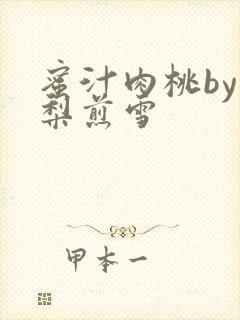 蜜汁肉桃by
梨煎雪
甲本一